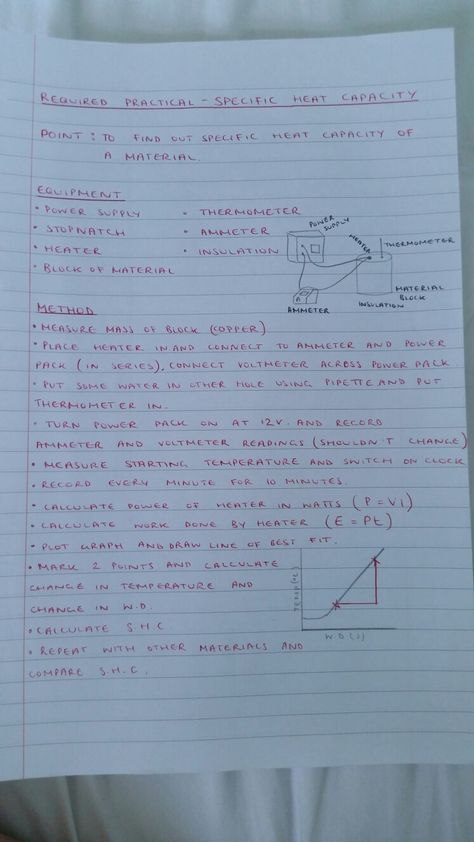 REQUIRED PRACTICAL - SPECIFIC HEAT CAPACITY
POINT: TO FIND OUT SPECIFIC HEAT CAPACITY OF
A MATERIAL.
EQUIPMENT
• POWER SUPPLY
• STOPWATCH
• HEATER
• BLOCK OF MATERIAL
• THERMOMETER
• AMMETER
• INSULATION
POWER
SUPPLY
HEATER
THERMOMETER
A
AMMETER
MATERIAL
BLOCK
INSULATION
METHOD
• MEASURE MASS OF BLOCK (COPPER)
• PLACE HEATER IN AND CONNECT TO AMMETER AND POWER
PACK (IN SERIES), CONNECT VOLTMETER ACROSS POWER PACK
• PUT SOME WATER IN OTHER HOLE USING PIPETTE AND PUT
THERMOMETER IN.
• TURN POWER PACK ON AT 12V. AND RECORD
AMMETER AND VOLTMETER READINGS (SHOULDN'T CHANGE)
• MEASURE STARTING TEMPERATURE AND SWITCH ON CLOCK
• RECORD EVERY MINUTE FOR 10 MINUTES.
• CALCULATE POWER OF HEATER IN WATTS (P = VI)
• CALCULATE WORK DONE BY HEATER (E = Pt)
• PLOT GRAPH AND DRAW LINE OF BEST FIT.
• MARK 2 POINTS AND CALCULATE
CHANGE IN TEMPERATURE AND
CHANGE IN W.D.
• CALCULATE S.H.C
• REPEAT WITH OTHER MATERIALS AND
COMPARE S.H.C.
TEMP(°C)
W.D(J)